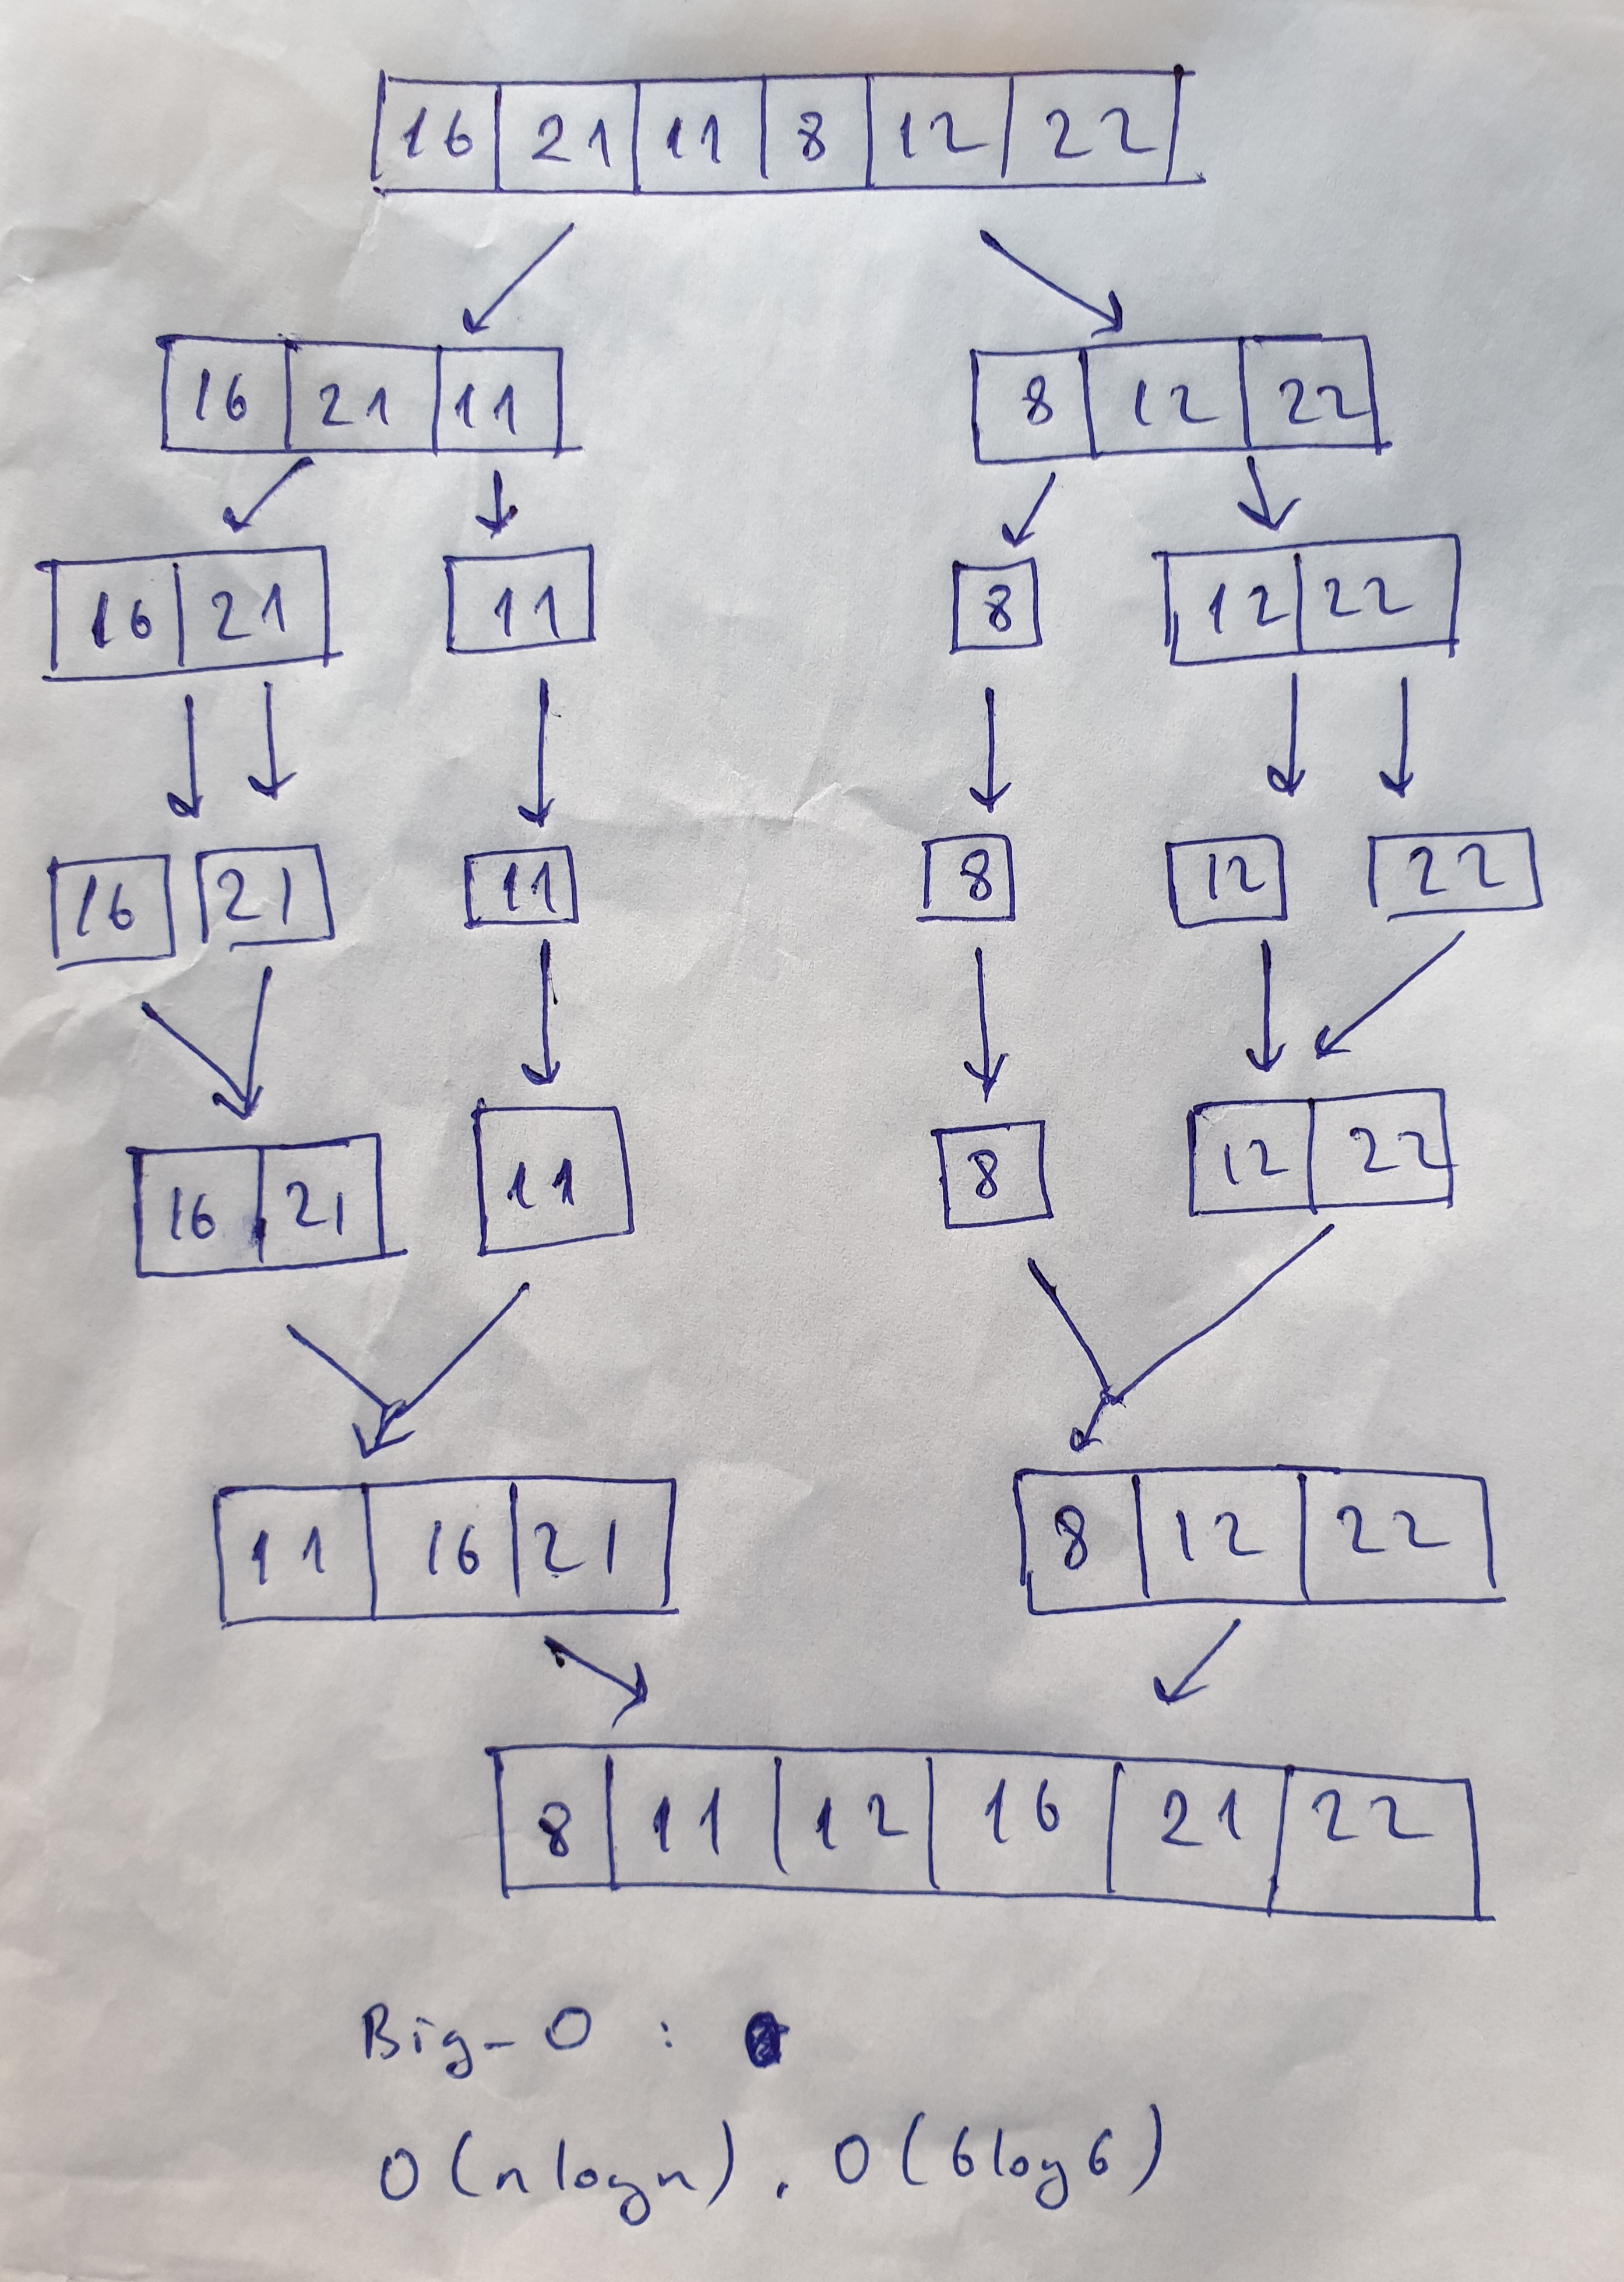 16 21 11 8 12 22
16 21 11 8 12 22
16 21 11 8 12 22
16 21 11 8 12 22
16 21 11 8 12 22
11 16 21 8 12 22
8 11 12 16 21 22
Big-O :
O(nlogn). O(6log6)